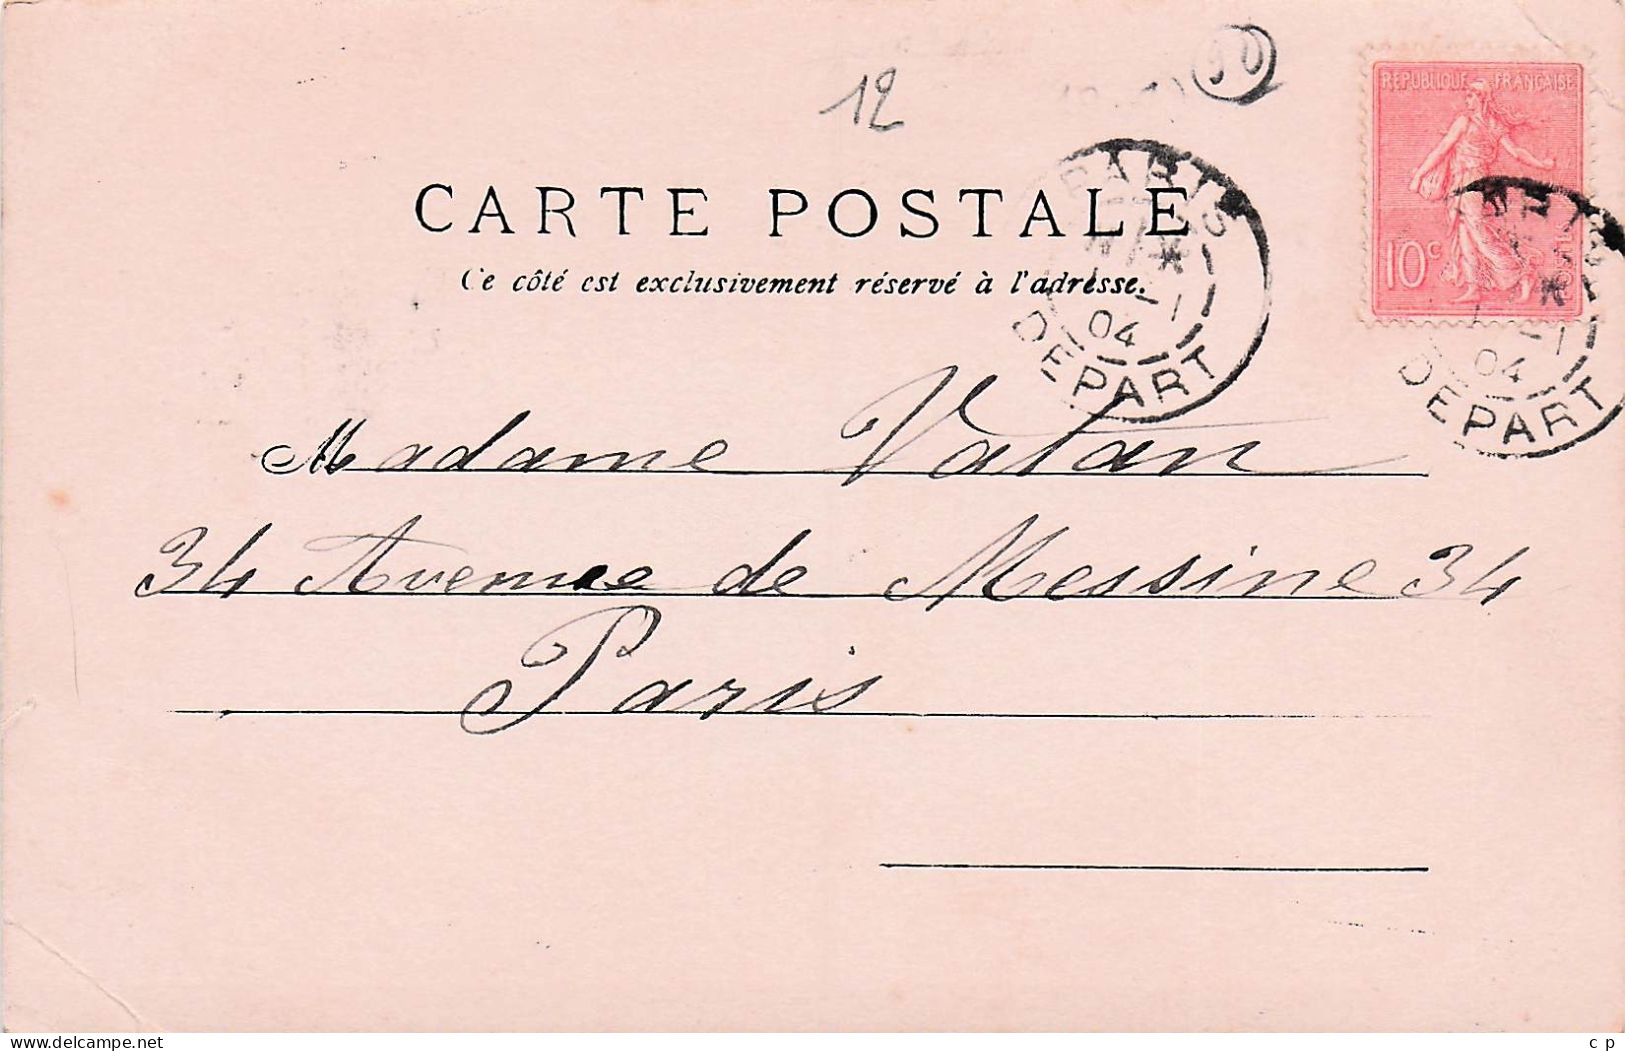 12
90
RÉPUBLIQUE FRANÇAISE
10c
CARTE POSTALE
Ce côté est exclusivement réservé à l'adresse.
PARIS
04
DEPART
04
DEPART
Madame Vatan
34 Avenue de Messine 34
Paris
www.delcampe.net
c p